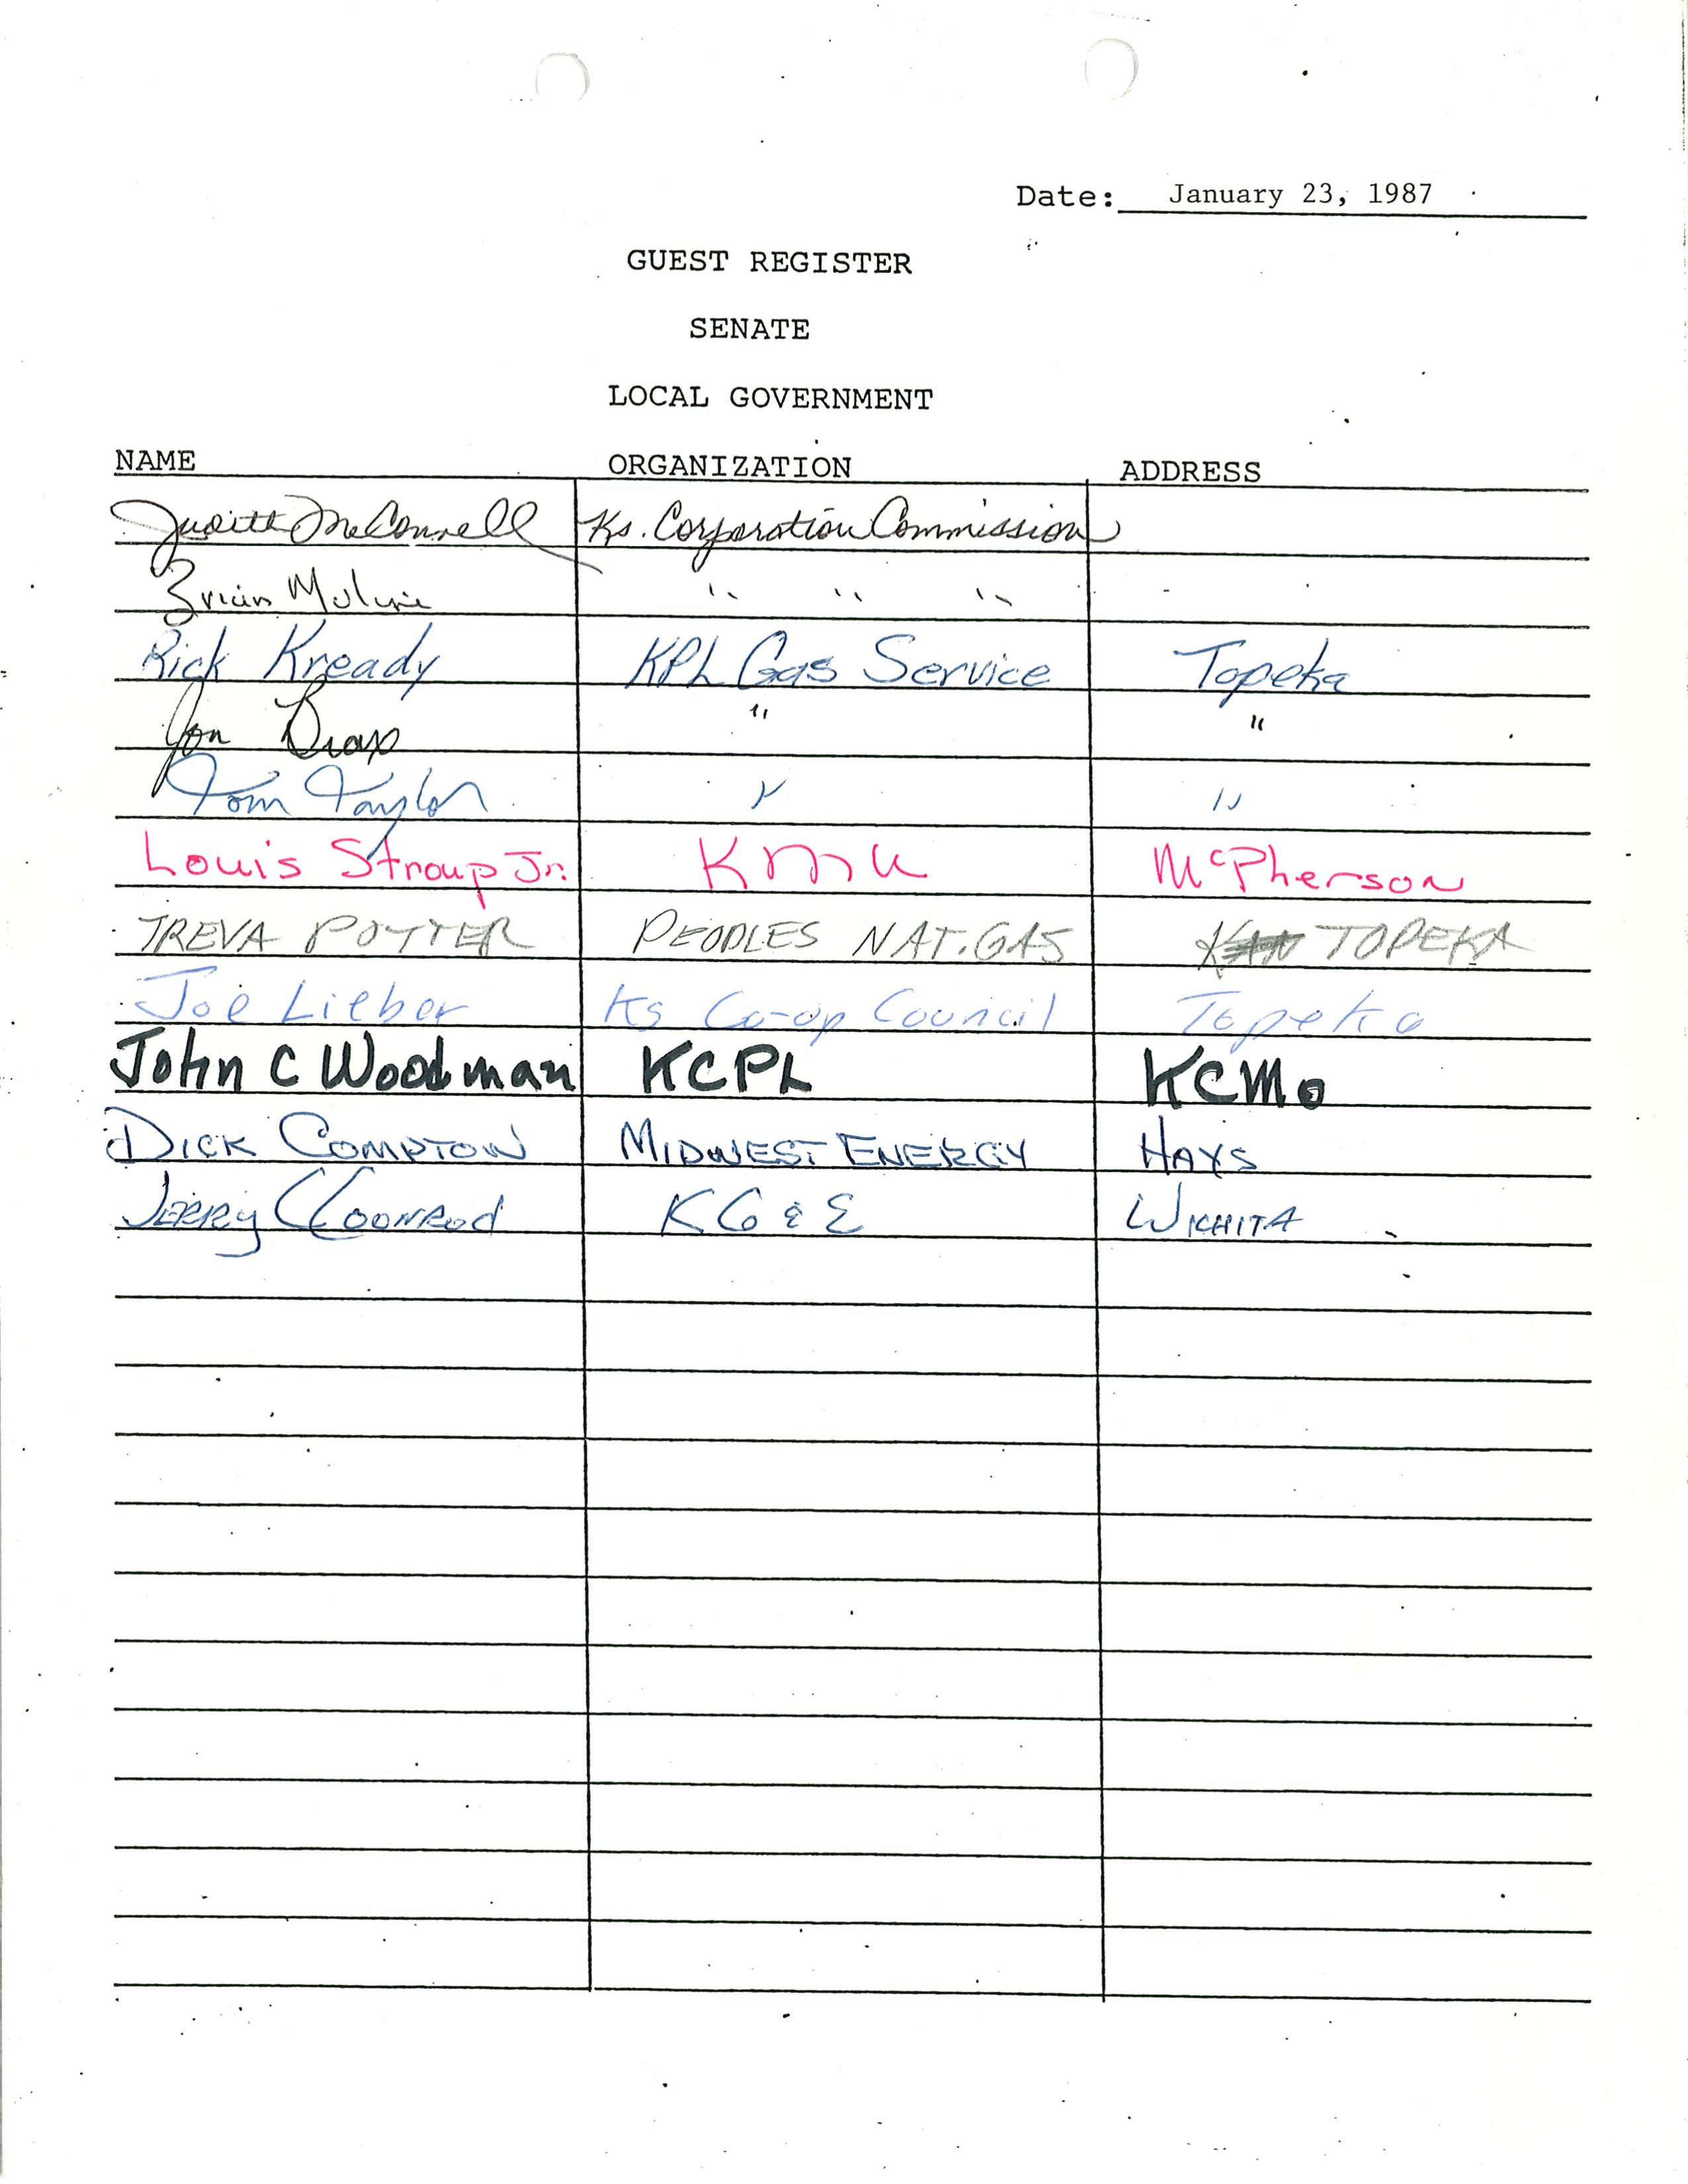 Date: January 23, 1987
GUEST REGISTER
SENATE
LOCAL GOVERNMENT
NAME ORGANIZATION ADDRESS
Judith McConnell Ks. Corporation Commission
Brian Moline " " "
Rick Kready KPL Gas Service Topeka
Jon " "
Tom Taylor " "
Louis Stroup Jr. KMU McPherson
TREVA POTTER PEOPLES NAT. GAS TOPEKA
Joe Lieber Ks Co-op Council Topeka
John C Woodman KCPL KCMo
DICK COMPTON MIDWEST ENERGY HAYS
JERRY COONROD KG & E WICHITA